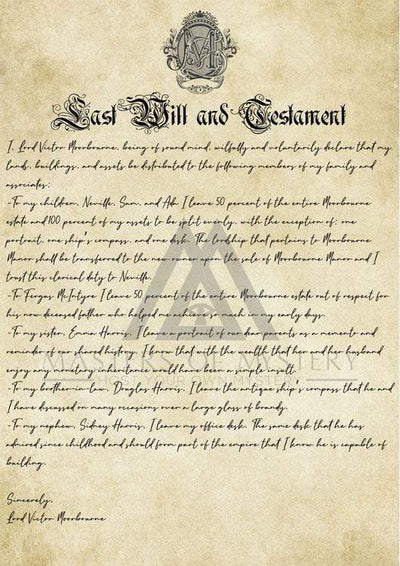 Last Will and Testament
I, Lord Victor Moorbourne, being of sound mind, wilfully and voluntarily declare that my
lands, buildings, and assets be distributed to the following members of my family and
associates:
-To my children, Neville, Sam, and Ash I leave 50 percent of the entire Moorbourne
estate and 100 percent of my assets to be split evenly, with the exception of: one
portrait, one ship's compass, and one desk. The lordship that pertains to Moorbourne
Manor shall be transferred to the new owner upon the sale of Moorbourne Manor and I
trust this clerical duty to Neville.
-To Fergus McIntyre I leave 50 percent of the entire Moorbourne estate out of respect for
his now deceased father who helped me achieve so much in my early days.
-To my sister, Emma Harris, I leave a portrait of our dear parents as a memento and
reminder of our shared history. I know that with the wealth that her and her husband
enjoy any monetary inheritance would have been a simple insult.
-To my brother-in-law, Douglas Harris, I leave the antique ship's compass that he and
I have discussed on many occasions over a large glass of brandy.
-To my nephew, Sidney Harris, I leave my office desk. The same desk that he has
admired since childhood and should form part of the empire that I know he is capable of
building.
Sincerely,
Lord Victor Moorbourne